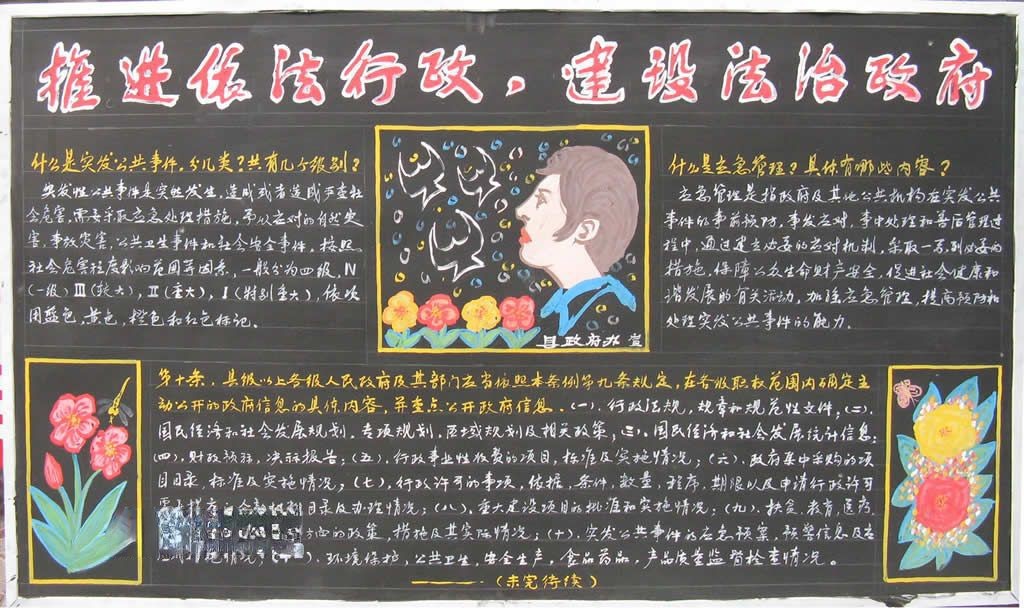 推进依法行政，建设法治政府
什么是突发公共事件，分几类？共有几个级别？
突发性公共事件是突然发生，造成或者造成严重社
会危害，需要采取应急处理措施，予以应对的自然灾
害，事故灾害，公共卫生事件和社会安全事件，按照
社会危害程度影响范围等因素，一般分为四级，Ⅳ
（一级）Ⅲ（较大），Ⅱ（重大），Ⅰ（特别重大），依次
用蓝色，黄色，橙色和红色标记。
县政府办宣
什么是应急管理？具体有哪些内容？
应急管理是指政府及其他公共机构在突发公共
事件的事前预防，事发应对，事中处理和善后管理过
程中，通过建立必要的应对机制，采取一系列必要的
措施，保障公众生命财产安全，促进社会健康和
谐发展的有关活动，加强应急管理，提高预防和
处理突发公共事件的能力.
第十条，县级以上各级人民政府及其部门应当依照本条例第九条规定，在各级职权范围内确定主
动公开的政府信息的具体内容，并重点公开政府信息。（一）.行政法规，规章和规范性文件，（二）.
国民经济和社会发展规划，专项规划，区域规划及相关政策，（三）.国民经济和社会发展统计信息；
（四），财政预算，决算报告；（五），行政事业性收费的项目，标准及实施情况；（六），政府集中采购的项
目目录，标准及实施情况；（七），行政许可的事项，依据，条件，数量，程序，期限以及申请行政许可
目录及办理情况；（八），重大建设项目的批准和实施情况；（九），扶贫，教育，医疗，
的政策，措施及其实际情况；（十），突发公共事件的应急预案，预警信息及
情况；环境保护，公共卫生，安全生产，食品药品，产品质量监督检查情况。
（未完待续）